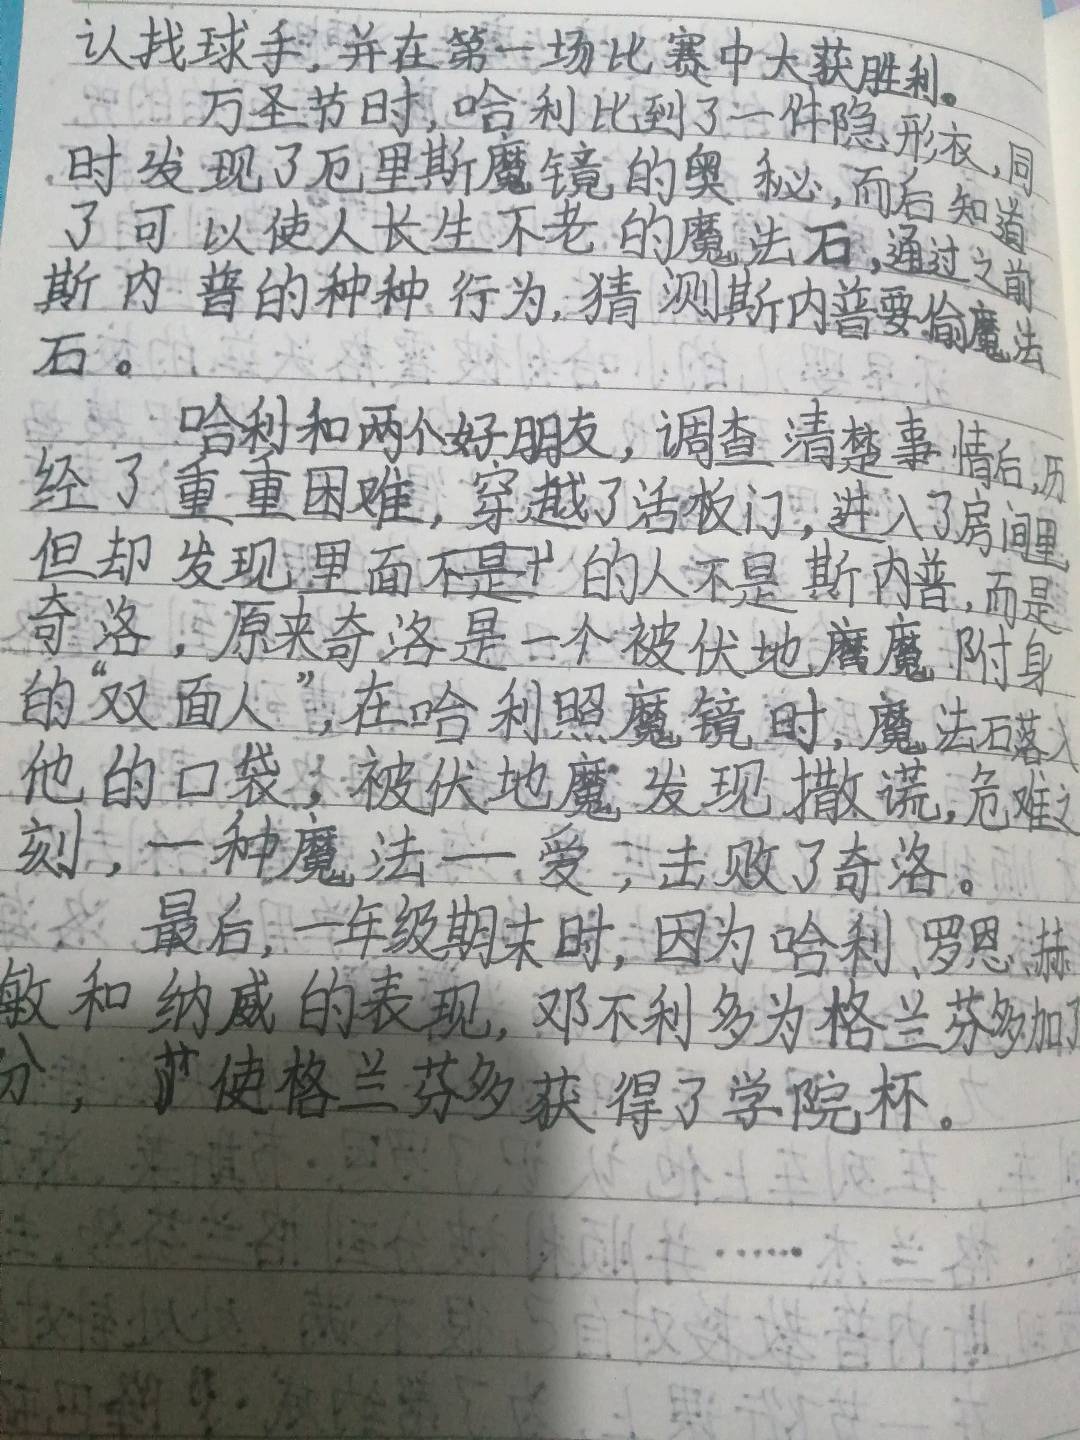 认找球手，并在第一场比赛中大获胜利。
万圣节时，哈利比到了一件隐形衣，同
时发现了厄里斯魔镜的奥秘，而后知道
了可以使人长生不老的魔法石，通过之前
斯内普的种种行为，猜测斯内普要偷魔法
石。
哈利和两个好朋友，调查清楚事情后，历
经了重重困难，穿越了活板门，进入了房间里
但却发现里面的人不是斯内普，而是
奇洛，原来奇洛是一个被伏地魔魔附身
的“双面人”，在哈利照魔镜时，魔法石落入
他的口袋，被伏地魔发现撒谎，危难之
刻，一种魔法——爱，击败了奇洛。
最后，一年级期末时，因为哈利、罗恩、赫
敏和纳威的表现，邓不利多为格兰芬多加了
分，使格兰芬多获得了学院杯。